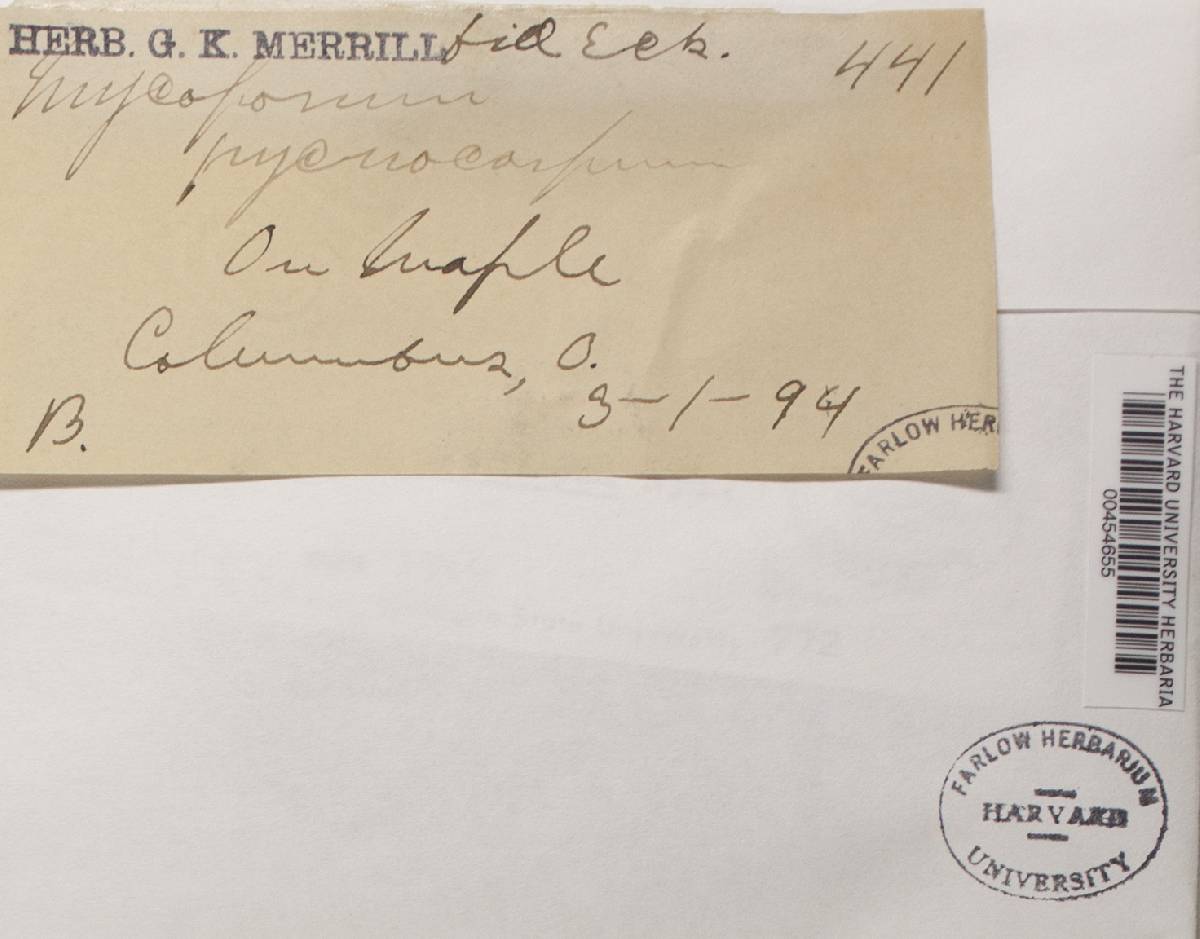 HERB. G. K. MERRILL fid Eck. 441
Mycoporum
pycnocarpum
On Maple
Columbus, O.
B. 3-1-94
FARLOW HER
THE HARVARD UNIVERSITY HERBARIA
00454655
FARLOW HERBARIUM
HARVARD
UNIVERSITY